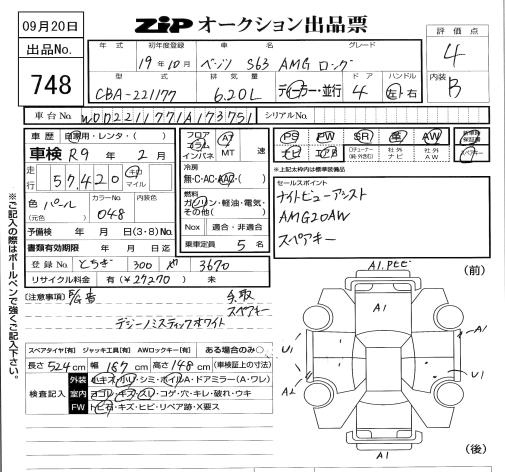 09月20日
ZIP オークション出品票
出品No.
748
年式
初年度登録
車名
グレード
19年10月 ベンツ S63 AMG ロング
型式
排気量
ドア
ハンドル
CBA-221177
6.20L
ディーラー・並行
4
左・右
評価点
4
内装
B
車台No.
WDD2211771A173751
シリアルNo.
車歴
自家用・レンタ・( )
車検 R9年 2月
走行
57,420
km
マイル
色
パール
(元色)
カラーNo.
048
内装色
予備検 年 月 日(3・8)No.
書類有効期限 年 月 日迄
登録No. とちぎ 300 3670
リサイクル料金 有(¥27270) 未
フロア
コラム
インパネ
AT
MT
速
冷房
無・C・AC・AAC・( )
燃料
ガソリン・軽油・電気・
その他( )
Nox 適合・非適合
乗車定員 5名
PS PW SR 革 AW
ナビ エアB
社外
ナビ
社外
AW
スペアキー
※上記太枠内は標準装備品
セールスポイント
ナイトビューアシスト
AMG20AW
スペアキー
※ご記入の際はボールペンで強くご記入下さい。
[注意事項]
スペアキー
スペアタイヤ[有] ジャッキ工具[有] AWロックキー[有] ある場合のみ○
長さ524cm 幅187cm 高さ148cm (車検証上の寸法)
検査記入
外装 小キズ・小凹・シミ・ホイルA・ドアミラー(A・ワレ)
室内 ヨゴレ・キズ・スレ・コゲ・穴・キレ・破れ・ウキ
FW トビ石・キズ・ヒビ・リペア跡・X要ス
(前)
A1
A1
U1
U1
A2
A1
(後)